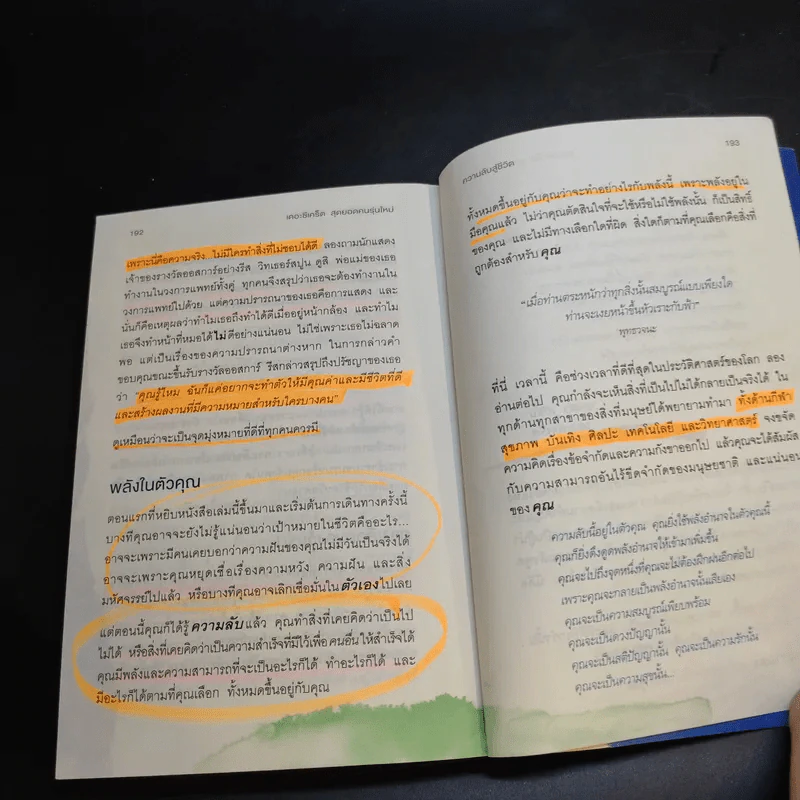 192
เดอะซีเคร็ต สุดยอดคนรุ่นใหม่
เพราะนี่คือความจริง...ไม่มีใครทำสิ่งที่ไม่ชอบได้ดี ลองถามนักแสดง
เจ้าของรางวัลออสการ์อย่างรีส วิทเธอร์สปูน ดูสิ พ่อแม่ของเธอ
ทำงานในวงการแพทย์ทั้งคู่ ทุกคนจึงสรุปว่าเธอจะต้องทำงานใน
วงการแพทย์ไปด้วย แต่ความปรารถนาของเธอคือการแสดง และ
นั่นก็คือเหตุผลว่าทำไมเธอถึงทำได้ดีเมื่ออยู่หน้ากล้อง และทำไม
เธอจึงทำหน้าที่หมอได้ไม่ดีอย่างแน่นอน ไม่ใช่เพราะเธอไม่ฉลาด
พอ แต่เป็นเรื่องของความปรารถนาต่างหาก ในการกล่าวคำ
ขอบคุณขณะขึ้นรับรางวัลออสการ์ รีสกล่าวสรุปถึงปรัชญาของเธอ
ว่า “คุณรู้ไหม ฉันก็แค่อยากจะทำตัวให้มีคุณค่าและมีชีวิตที่ดี
และสร้างผลงานที่มีความหมายสำหรับใครบางคน”
ดูเหมือนว่าจะเป็นจุดมุ่งหมายที่ดีที่ทุกคนควรมี
พลังในตัวคุณ
ตอนแรกที่หยิบหนังสือเล่มนี้ขึ้นมาและเริ่มต้นการเดินทางครั้งนี้
บางทีคุณอาจจะยังไม่รู้แน่นอนว่าเป้าหมายในชีวิตคืออะไร...
อาจจะเพราะมีคนเคยบอกว่าความฝันของคุณไม่มีวันเป็นจริงได้
อาจจะเพราะคุณหยุดเชื่อเรื่องความหวัง ความฝัน และสิ่ง
มหัศจรรย์ไปแล้ว หรือบางทีคุณอาจเลิกเชื่อมั่นใน ตัวเอง ไปเลย
แต่ตอนนี้คุณก็ได้รู้ ความลับ แล้ว คุณทำสิ่งที่เคยคิดว่าเป็นไป
ไม่ได้ หรือสิ่งที่เคยคิดว่าเป็นความสำเร็จที่มีไว้เพื่อคนอื่น ให้สำเร็จได้
คุณมีพลังและความสามารถที่จะเป็นอะไรก็ได้ ทำอะไรก็ได้ และ
มีอะไรก็ได้ตามที่คุณเลือก ทั้งหมดขึ้นอยู่กับคุณ
193
ความลับสู่ชีวิต
ทั้งหมดขึ้นอยู่กับคุณว่าจะทำอย่างไรกับพลังนี้ เพราะพลังอยู่ใน
มือคุณแล้ว ไม่ว่าคุณตัดสินใจที่จะใช้หรือไม่ใช้พลังนั้น ก็เป็นสิทธิ์
ของคุณ และไม่มีทางเลือกใดที่ผิด สิ่งใดก็ตามที่คุณเลือกคือสิ่งที่
ถูกต้องสำหรับ คุณ
“เมื่อท่านตระหนักว่าทุกสิ่งนั้นสมบูรณ์แบบเพียงใด
ท่านจะเงยหน้าขึ้นหัวเราะกับฟ้า”
พุทธวจนะ
ที่นี่ เวลานี้ คือช่วงเวลาที่ดีที่สุดในประวัติศาสตร์ของโลก ลอง
อ่านต่อไป คุณกำลังจะเห็นสิ่งที่เป็นไปไม่ได้กลายเป็นจริงได้ ใน
ทุกด้านทุกสาขาของสิ่งที่มนุษย์ได้พยายามทำมา ทั้งด้านกีฬา
สุขภาพ บันเทิง ศิลปะ เทคโนโลยี และวิทยาศาสตร์ จงขจัด
ความคิดเรื่องข้อจำกัดและความกังขาออกไป แล้วคุณจะได้สัมผัส
กับความสามารถอันไร้ขีดจำกัดของมนุษยชาติ และแน่นอน
ของ คุณ
ความลับนี้อยู่ในตัวคุณ คุณยิ่งใช้พลังอำนาจในตัวคุณนี้
คุณก็ยิ่งดึงดูดพลังอำนาจให้เข้ามาเพิ่มขึ้น
คุณจะไปถึงจุดหนึ่งที่คุณจะไม่ต้องฝึกฝนอีกต่อไป
เพราะคุณจะกลายเป็นพลังอำนาจนั้นเสียเอง
คุณจะเป็นความสมบูรณ์เพียบพร้อม
คุณจะเป็นดวงปัญญานั้น
คุณจะเป็นสติปัญญานั้น คุณจะเป็นความรักนั้น
คุณจะเป็นความสุขนั้น...